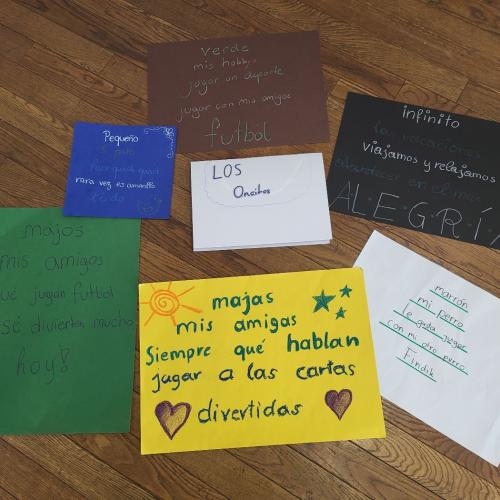 verde
mis hobbys
jugar un deporte
jugar con mis amigos
futbol
Pequeño
rara vez es amarillo
LOS
Onceitos
infinito
las vacaciones
Viajamos y relajamos
en el mar
ALEGRÍA
majos
mis amigos
qué jugan futbol
se divierten mucho
hoy!
majas
mis amigas
Siempre qué hablan
jugar a las cartas
divertidas
marrón
mi perro
le gusta jugar
con mi otro perro
Findik